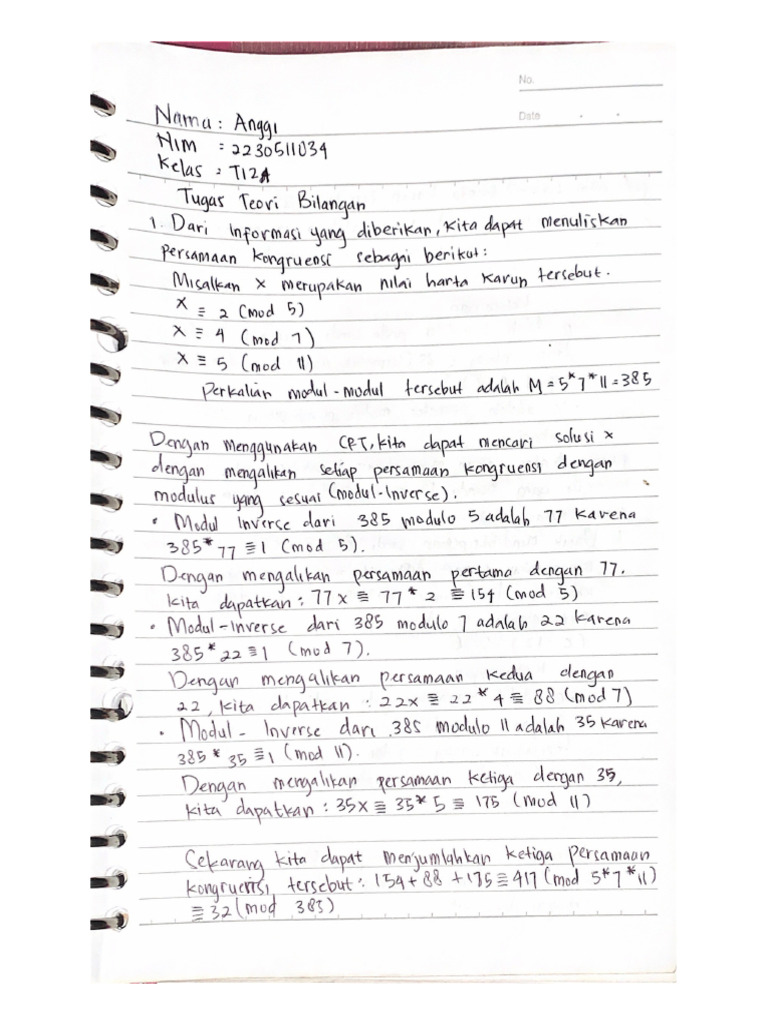 No.
Date
Nama : Anggi
NIM : 2230511034
Kelas : TI2A
Tugas Teori Bilangan
1. Dari informasi yang diberikan, kita dapat menuliskan
persamaan kongruensi sebagai berikut:
Misalkan x merupakan nilai harta karun tersebut.
x ≡ 2 (mod 5)
x ≡ 4 (mod 7)
x ≡ 5 (mod 11)
Perkalian modul-modul tersebut adalah M = 5*7*11 = 385
Dengan menggunakan CRT, kita dapat mencari solusi x
dengan mengalikan setiap persamaan kongruensi dengan
modulus yang sesuai (modul-Inverse).
• Modul Inverse dari 385 modulo 5 adalah 77 karena
385*77 ≡ 1 (mod 5).
Dengan mengalikan persamaan pertama dengan 77.
kita dapatkan : 77x ≡ 77*2 ≡ 154 (mod 5)
• Modul-Inverse dari 385 modulo 7 adalah 22 karena
385*22 ≡ 1 (mod 7).
Dengan mengalikan persamaan kedua dengan
22, kita dapatkan : 22x ≡ 22*4 ≡ 88 (mod 7)
• Modul-Inverse dari 385 modulo 11 adalah 35 karena
385*35 ≡ 1 (mod 11).
Dengan mengalikan persamaan ketiga dengan 35,
kita dapatkan : 35x ≡ 35*5 ≡ 175 (mod 11)
Sekarang kita dapat menjumlahkan ketiga persamaan
kongruensi tersebut : 154 + 88 + 175 ≡ 417 (mod 5*7*11)
≡ 32 (mod 385)